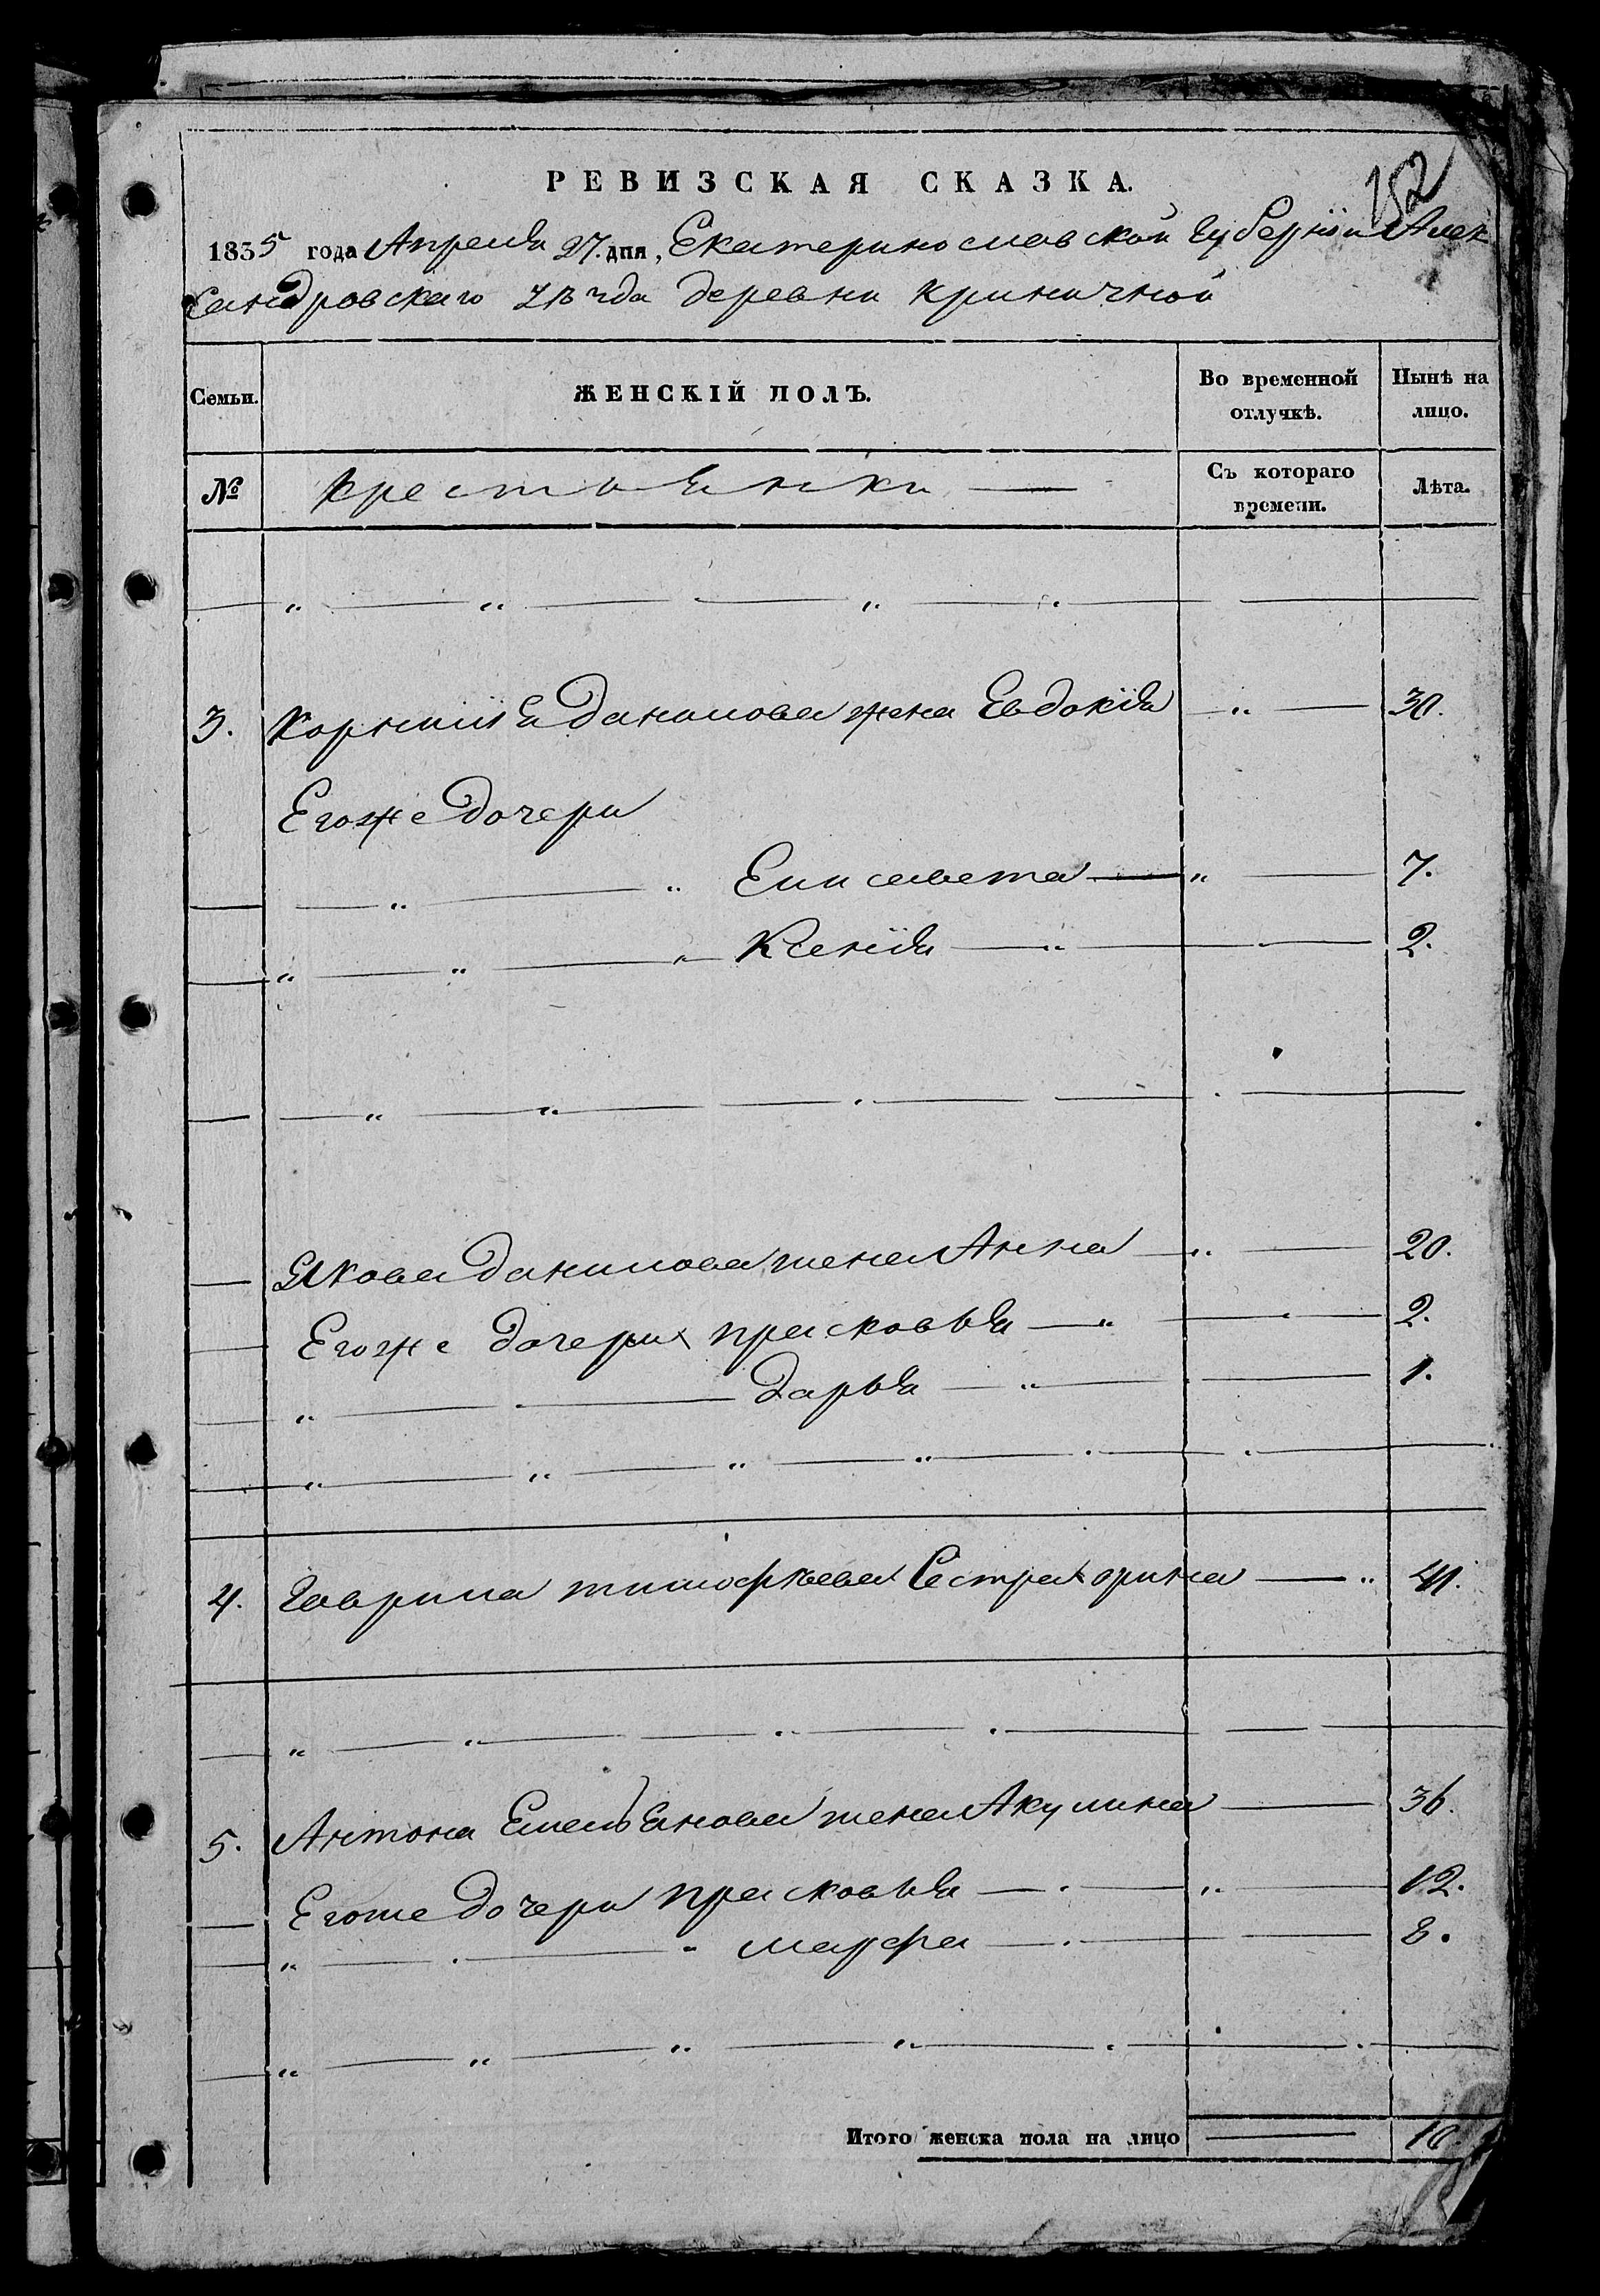 152
РЕВИЗСКАЯ СКАЗКА.
1835 года Апреля 27. дня, Екатеринославской Губернии Алек
сандровскаго уѣзда деревни криничной
Семьи.
ЖЕНСКІЙ ПОЛЪ.
Во временной отлучкѣ.
Нынѣ на лицо.
№
крестьянки
Съ котораго времени.
Лѣта.
3. Корнилія Данилова жена Евдокія 30.
Егоже Дочери
Елисавета 7.
Ксенія 2.
Якова Данилова жена Анна 20.
Егоже дочери прасковья 2.
Дарья 1.
4. Гаврила тимофѣева Сестра орина 41.
5. Антона Емельянова жена Акулина 36.
Егоже Дочери прасковья 12.
марфа 8.
Итого женска пола на лицо 10.